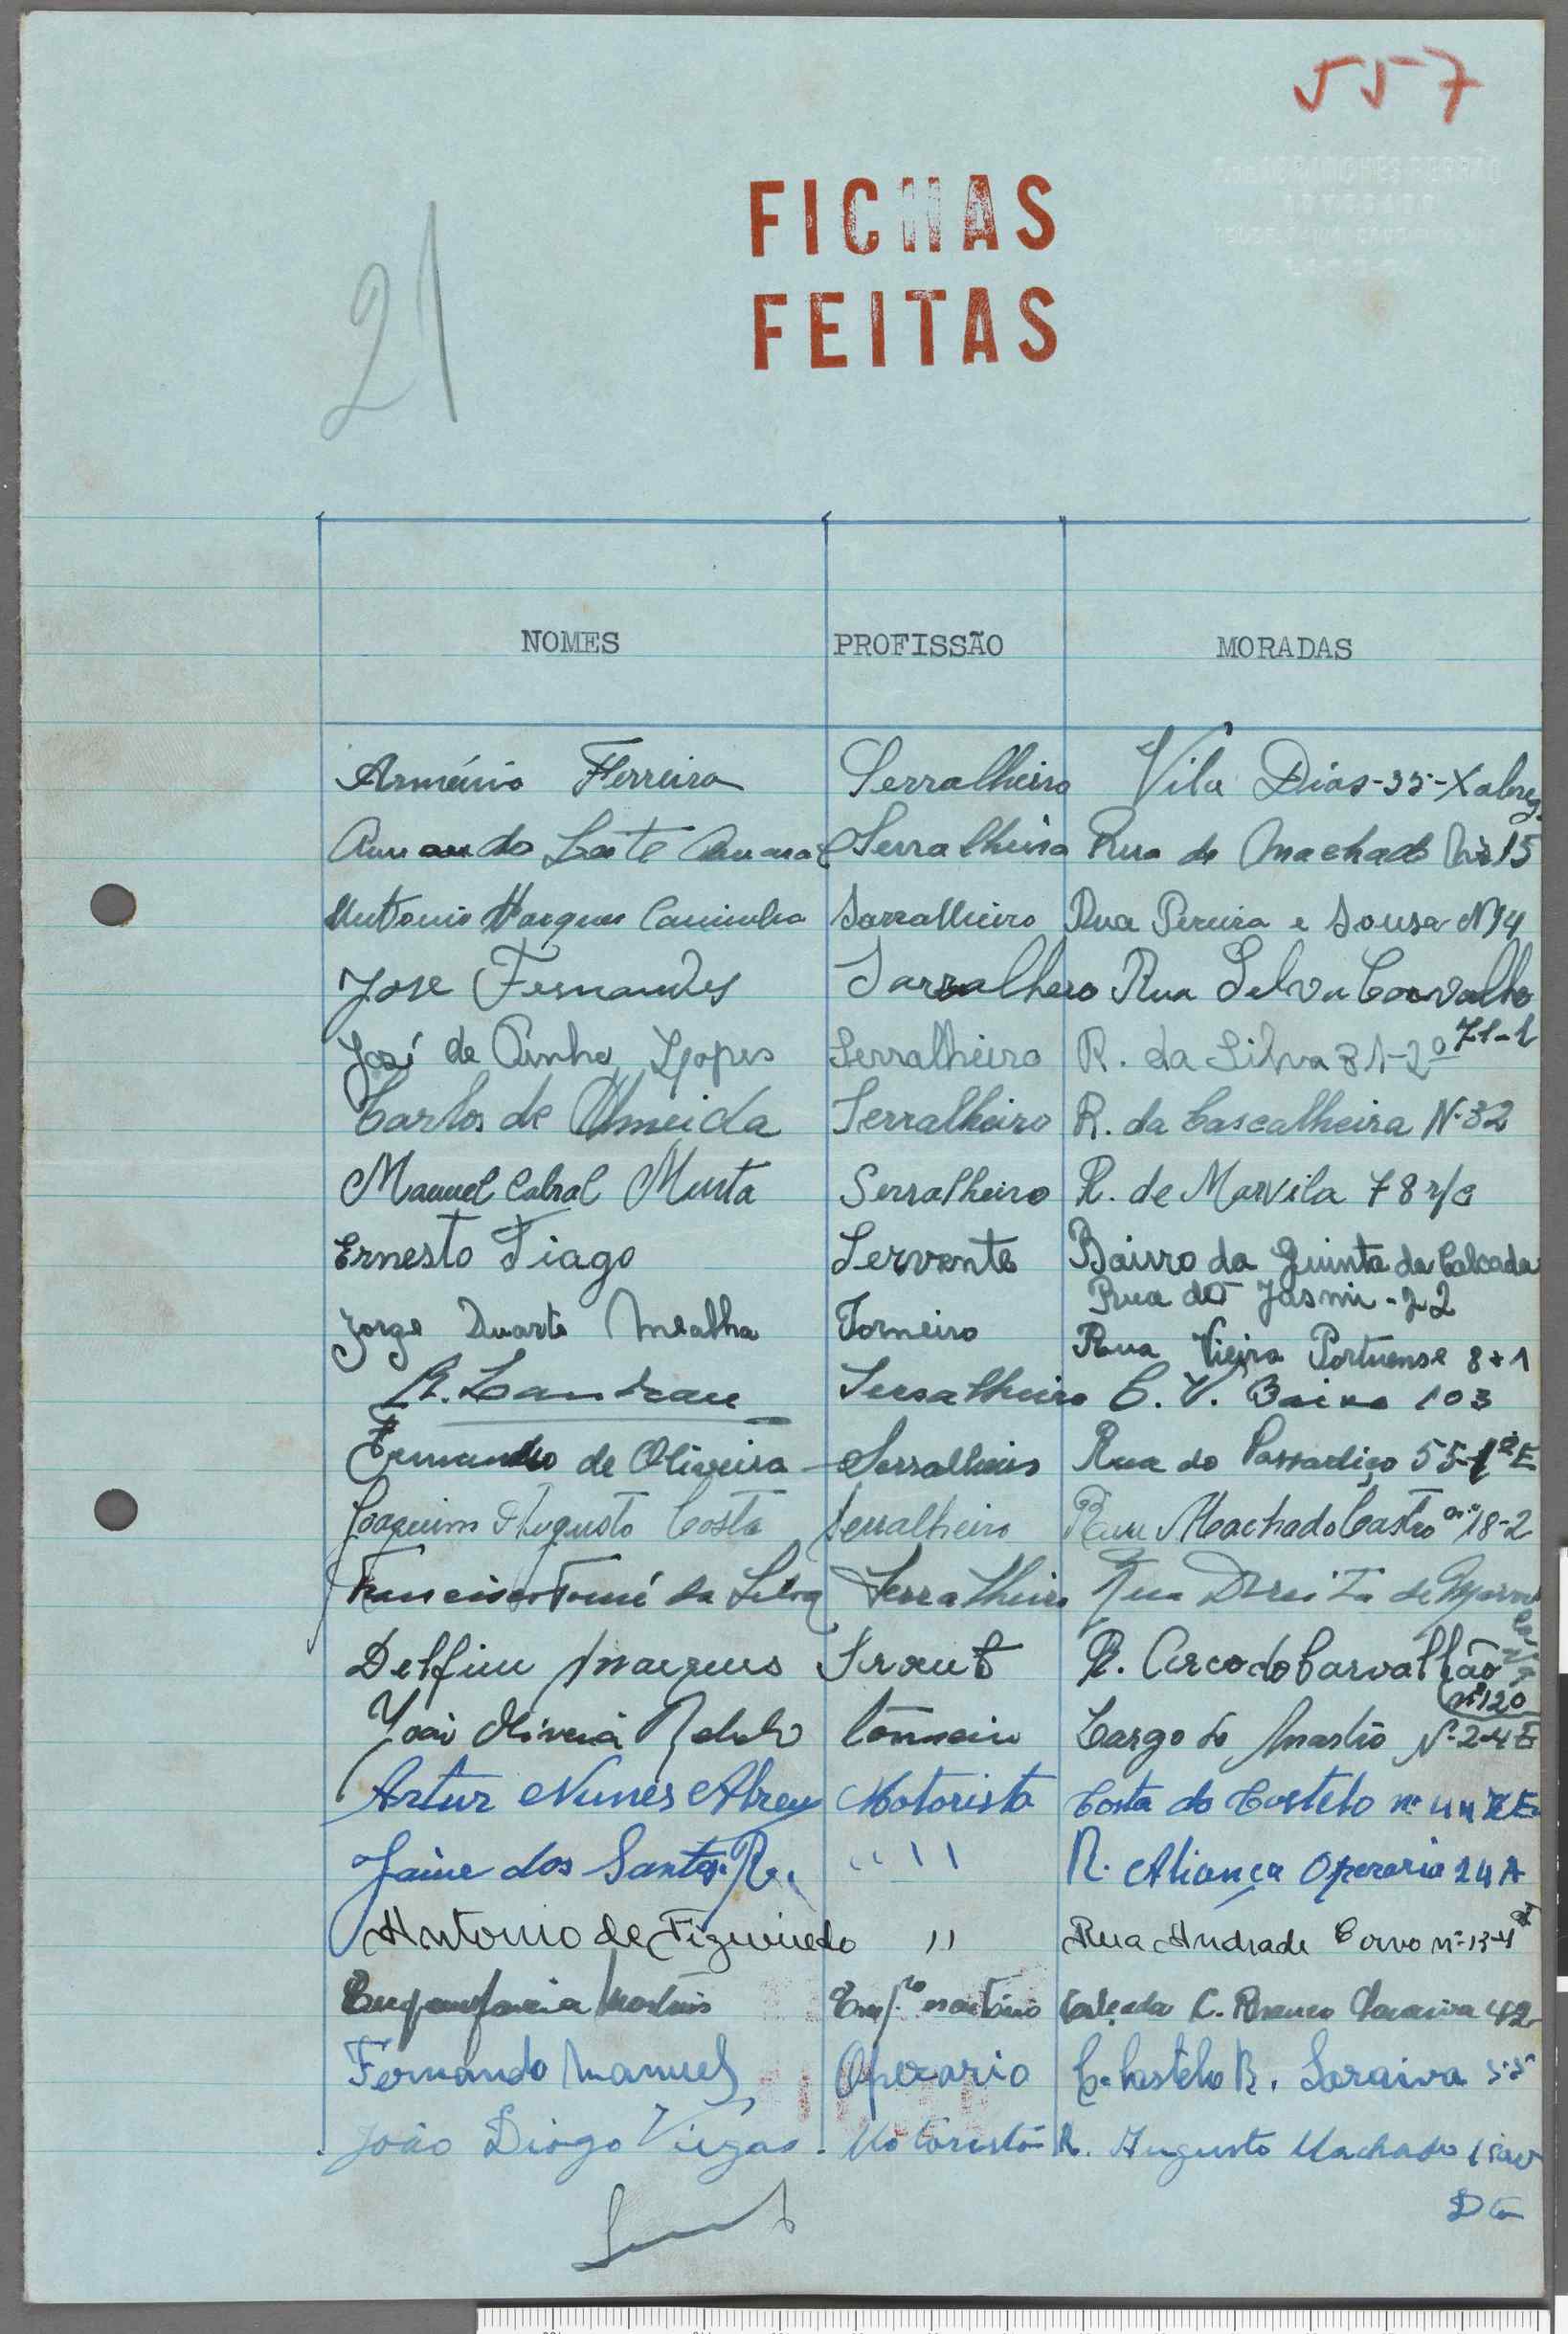 557
FICHAS
FEITAS
21
NOMES PROFISSÃO MORADAS
Arménio Ferreira Serralheiro Vila Dias-35-Xabreg
Serralheiro Rua do Machado 15
Antonio Marques Caminha Sarralheiro Rua Pereira e Sousa Nº 4
Jose Fernandes Sarralhero Rua Silva Carvalho
71-1
José de Pinho Lopes Serralheiro R. da Silva 31-2º
Carlos de Almeida Serralheiro R. da Cascalheira N-32
Manuel Cabral Murta Serralheiro R. de Marvila 78 r/c
Ernesto Tiago Servente Bairro da Quinta da Calcada
Rua do Jasmi-22
Jorge Duarte Mealha Torneiro Rua Vieira Portuense 8
Serralheiro C. V. Baixo 103
Fernando de Oliveira Serralheiro Rua do Passadiço 55-1º E
Joaquim Augusto Costa Serralheiro Machado Castro nº 18-2
Francisco Tomé da Silva Serralheiro Rua Direita de
Delfim Marques Servente R. Arco do Carvalhão
nº 120
João Oliveira Largo do Mastro N-2-4 E
Artur Nunes Abreu Motorista Costa do Castelo nº
Jaime dos Santos " " R. Aliança Operaria 24 A
Antonio de Figueiredo " Rua Andrade Corvo nº 13-4
Martins Calçada C. Branco Saraiva 42
Fernando Manuel Operario C. Castelo B. Saraiva 55
João Diogo Viegas Motorista R. Augusto Machado
Dto